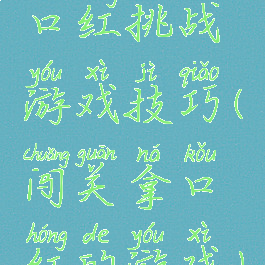 口红挑战
yóu xì jì qiǎo
游戏技巧(
chuǎng guān ná kǒu
闯关拿口
hóng de yóu xì
红的游戏)